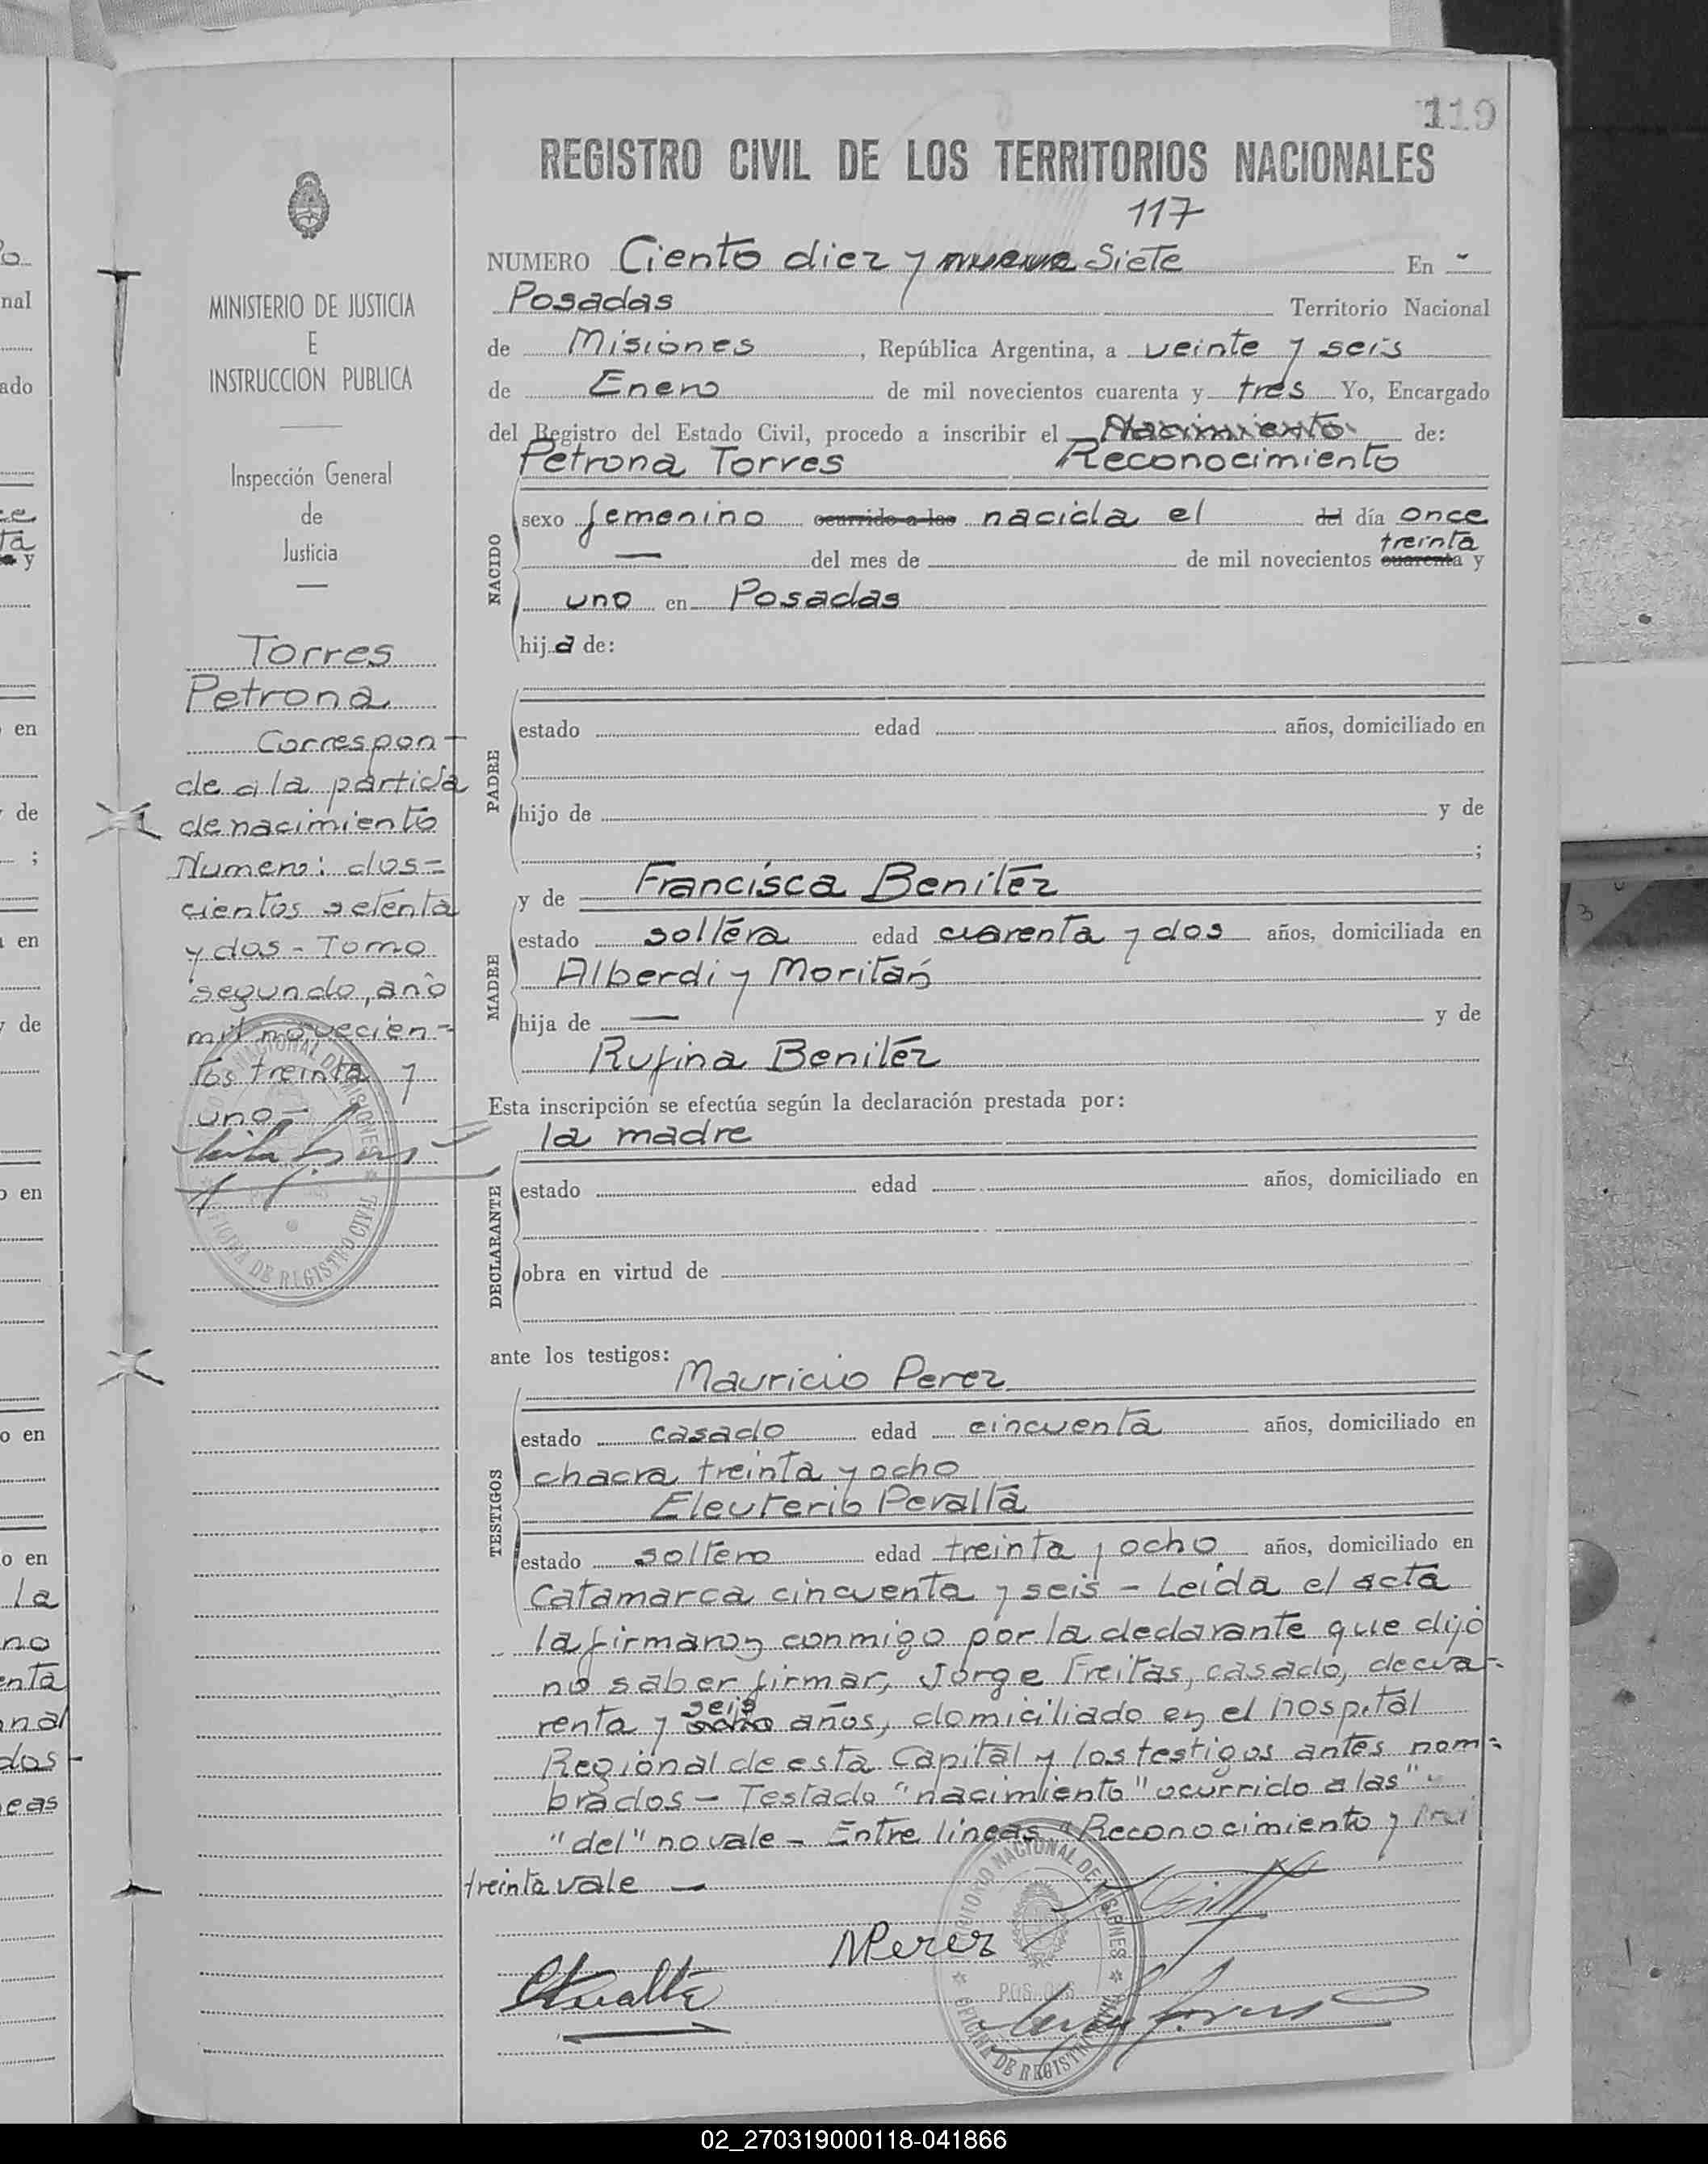 119
REGISTRO CIVIL DE LOS TERRITORIOS NACIONALES
117
NUMERO Ciento diez y nueve Siete En
Posadas Territorio Nacional
de Misiones, República Argentina, a veinte y seis
de Enero de mil novecientos cuarenta y tres Yo, Encargado
del Registro del Estado Civil, procedo a inscribir el Nacimiento de:
Petrona Torres Reconocimiento
NACIDO
sexo femenino ocurrido a las nacida el del día once
treinta
— del mes de de mil novecientos cuarenta y
uno en Posadas
hija de:
PADRE
estado edad años, domiciliado en
hijo de y de
;
MADRE
y de Francisca Benitéz
estado soltéra edad cuarenta y dos años, domiciliada en
Alberdi y Moritań
hija de — y de
Rufina Benitéz
Esta inscripción se efectúa según la declaración prestada por:
la madre
DECLARANTE
estado edad años, domiciliado en
obra en virtud de
ante los testigos:
TESTIGOS
Mauricio Perez
estado casado edad cincuenta años, domiciliado en
chacra treinta y ocho
Eleuterio Peralta
estado soltero edad treinta y ocho años, domiciliado en
Catamarca cincuenta y seis - Leída el acta
la firmaron conmigo por la declarante que dijó
no saber firmar, Jorge Freitas, casado, de cua-
seis
renta y años, domiciliado en el hospital
Regional de esta Capital y los testigos antes nom=
brados - Testado "nacimiento" ocurrido a las"
"del" no vale - Entre lineas "Reconocimiento y
treinta vale —
MPerez
MINISTERIO DE JUSTICIA
E
INSTRUCCION PUBLICA
Inspección General
de
Justicia
Torres
Petrona
Correspon-
de a la partida
de nacimiento
Numero: dos=
cientos setenta
y dos - Tomo
segundo, año
mil novecien-
tos treinta y
uno -
TERRITORIO NACIONAL DE MISIONES
OFICINA DE REGISTRO CIVIL
TERRITORIO NACIONAL DE MISIONES
POSADAS
OFICINA DE REGISTRO CIVIL
nal
ado
y
en
de
;
en
de
en
o en
o en
la
no
enta
nal
dos-
eas
02_270319000118-041866